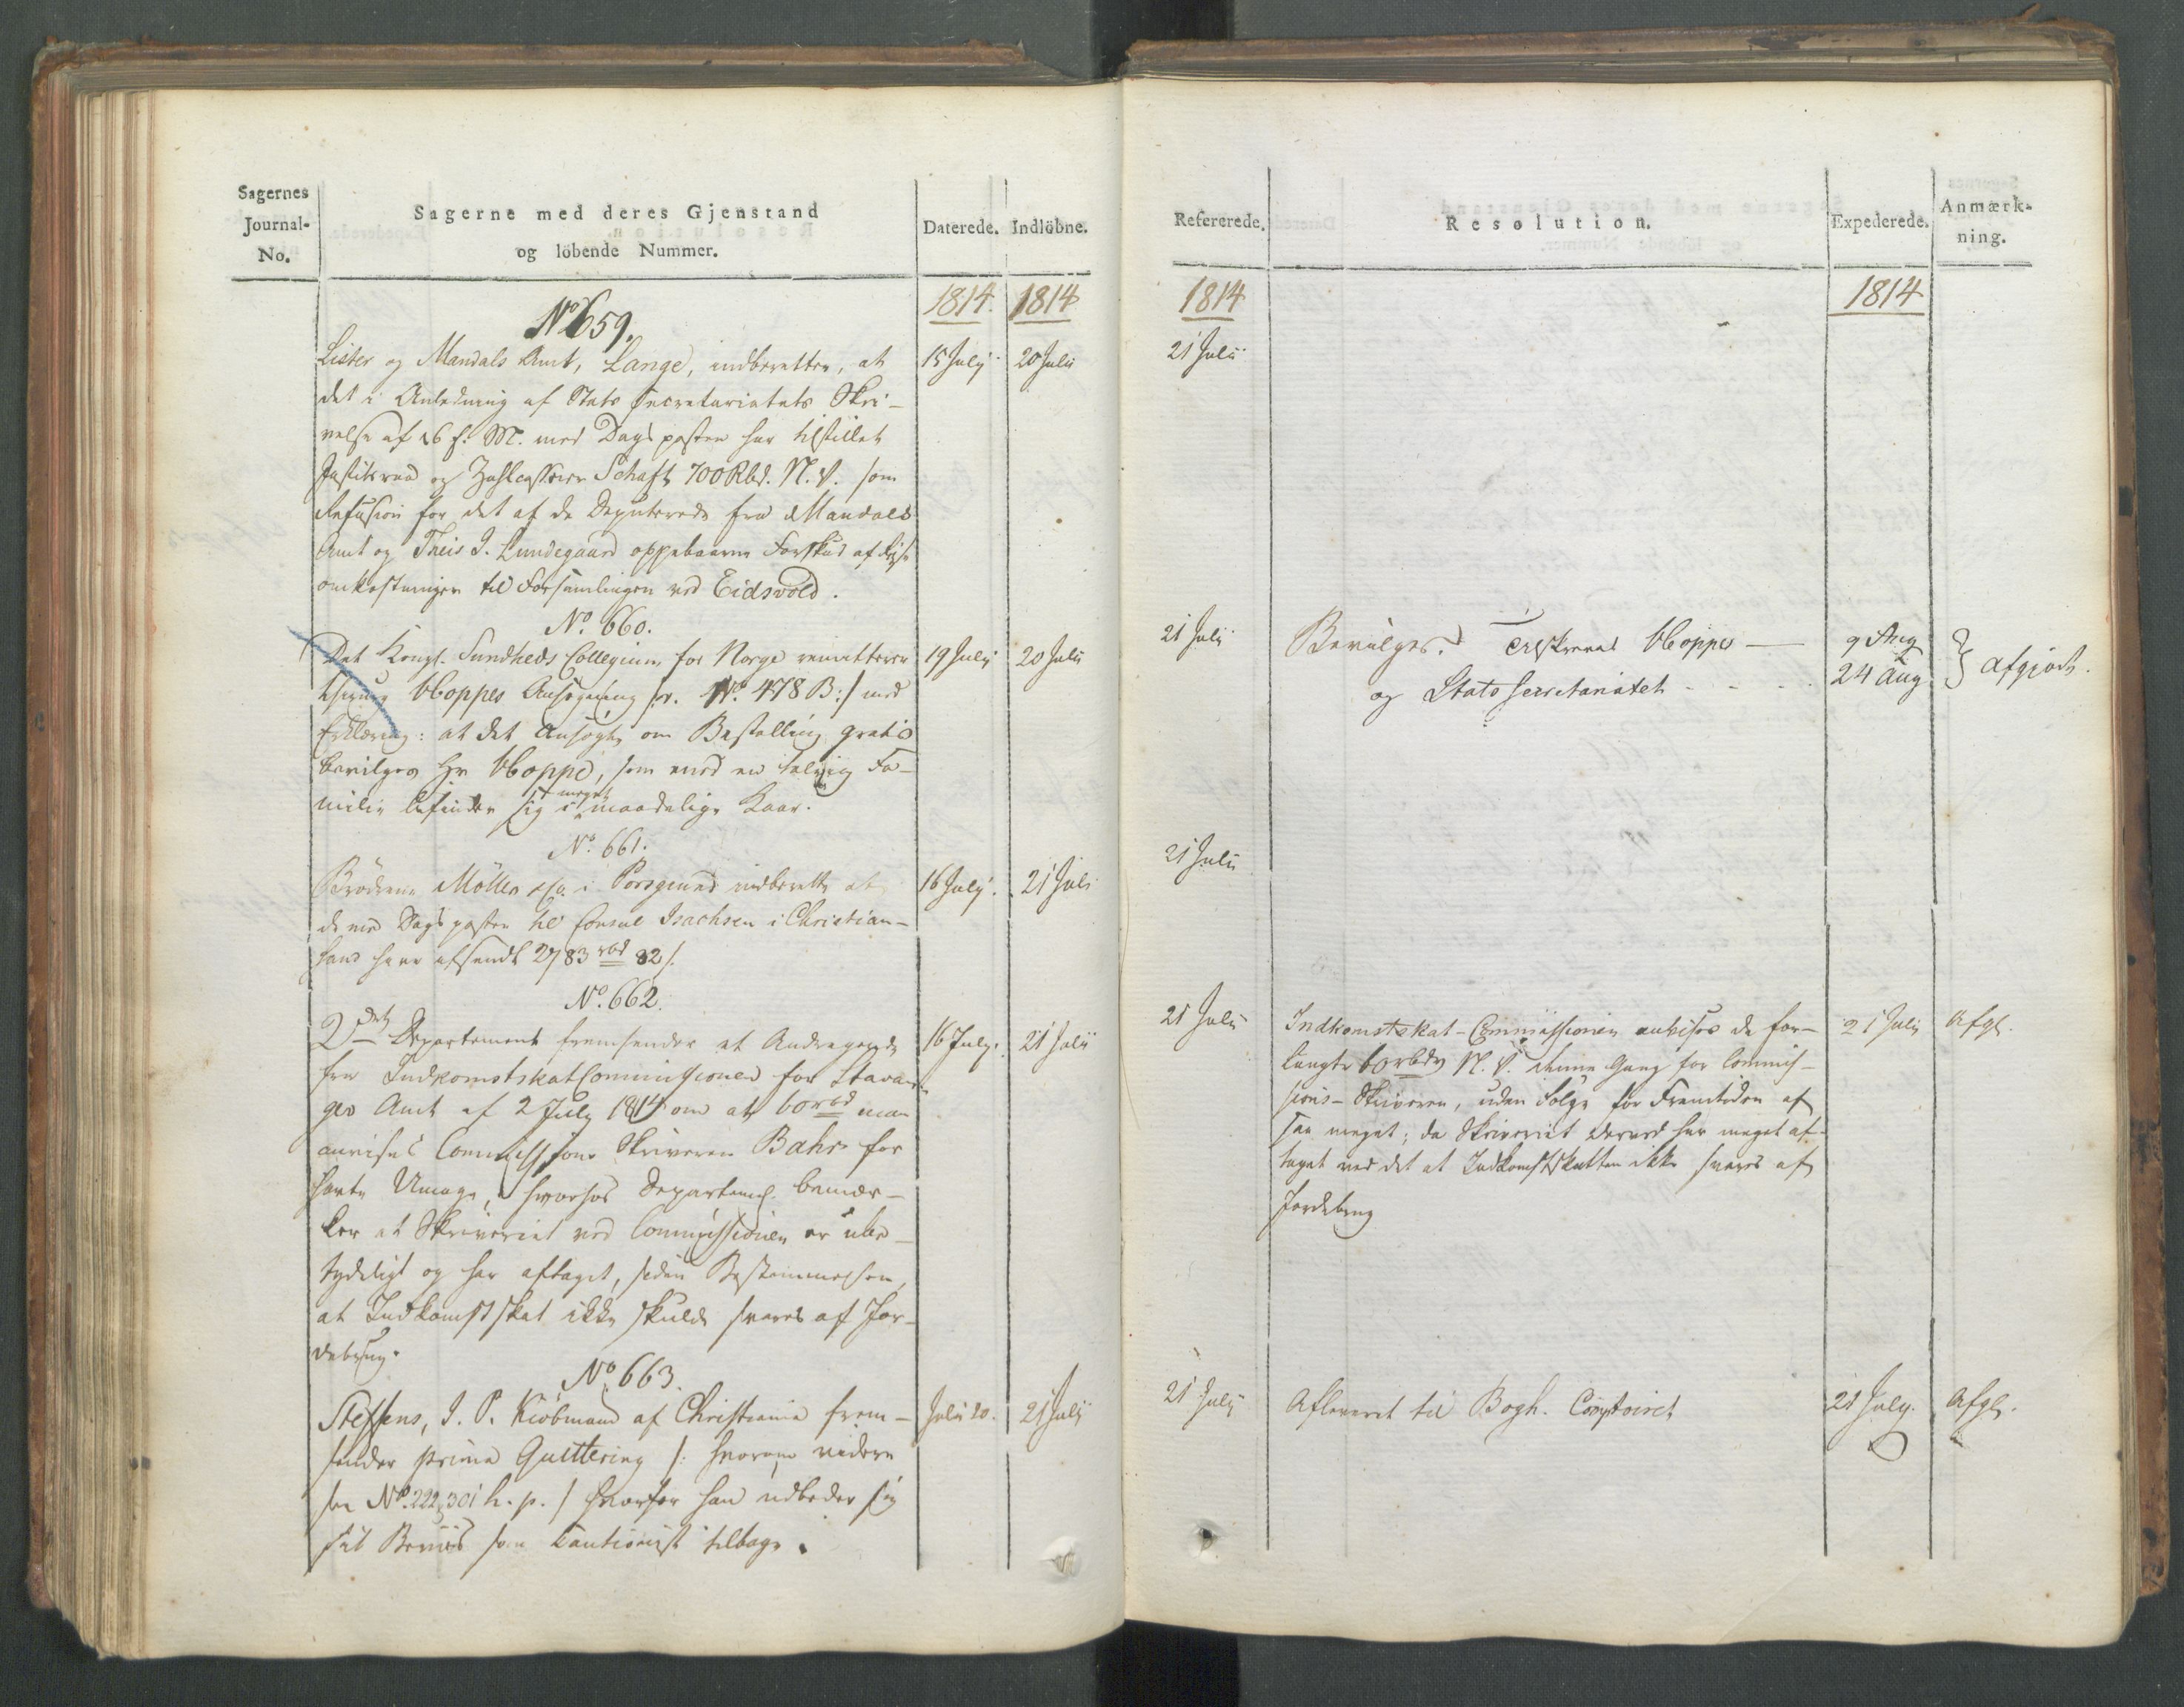 Sagernes
Journal-
No.
Sagerne med deres Gjenstand
og löbende Nummer.
Daterede.
Indlöbne.
1814.
1814
No 659.
Lister og Mandals Amt, Lange, indberetter, at
det i Anledning af Stats Secretariatets Skri-
velse af 16 f. M. med Dags posten har tilstillet
Justitsraad og Zahlcasserer Schaft 700 Rbd. N. V. som
Refusion for det af de Deputerede fra Mandals
Amt og Theis J. Lundegaard oppebaarne Forskud af Reise
omkostninger til Forsamlingen ved Eidsvold.
15 July
20 Julii
No. 660.
Det Kongl. Sundheds Collegium for Norge remitterer
Chirurg Hoppes Ansøgning /: No. 478 B :/ med
Erklæring: at det ansøgte om Bestalling gratis
bevilges Hr Hoppe, som med en talrig Fa-
milie befinder sig i meget maadelige Kaar.
19 July
20 Julii
No. 661.
Brödrene Möller i Porsgrund indberette at
de med Dags posten til Consul Isachsen i Christian-
sand have afsendt 2783 rbd 32 s.
16 July.
21 Juli
No. 662.
2det Departement fremsender et Andragende
fra IndkomstskatCommissionen for Stavan-
gers Amt af 2 July 1814 om at 60 rbd maa
anvises Commissions Skriveren Bahr for
havte Umage, hvorhos Departem. bemær-
ker at Skriveriet ved Commissionen er ube-
tydeligt og har aftaget, siden Bestemmelsen,
at Indkomstskat ikke skulde svares af Jor-
debrug.
16 July.
21 Julii
No 663.
Steffens, J. P. Kiöbmand af Christiania frem-
sender prima Quittering /: hvorom videre
see No. 222, 301 h. p. / hvorfor han udbeder sig
sit Beviis som Cautionist tilbage.
Julii 20.
21 July
Refererede.
Resolution.
Expederede.
Anmærk-
ning.
1814
1814
21 Julii
21 July
Bevilges. Hoppe
og Stats Secretariatet
9 Aug
24 Aug
afgjort.
21 Julii
21 Julii
Indkomstskat-Commissionen anvises de for-
langte 60 rbdr N. V. denne Gang for Commis-
sions-Skriveren, uden Følge for Fremtiden af
saa meget; da Skriveriet derved har meget af-
taget ved det at Indkomstskatten ikke svares af
Jordebrug
21 July
Afgl.
21 July
Afleveret til Bogh. Comptoiret
21 July.
Afgl.